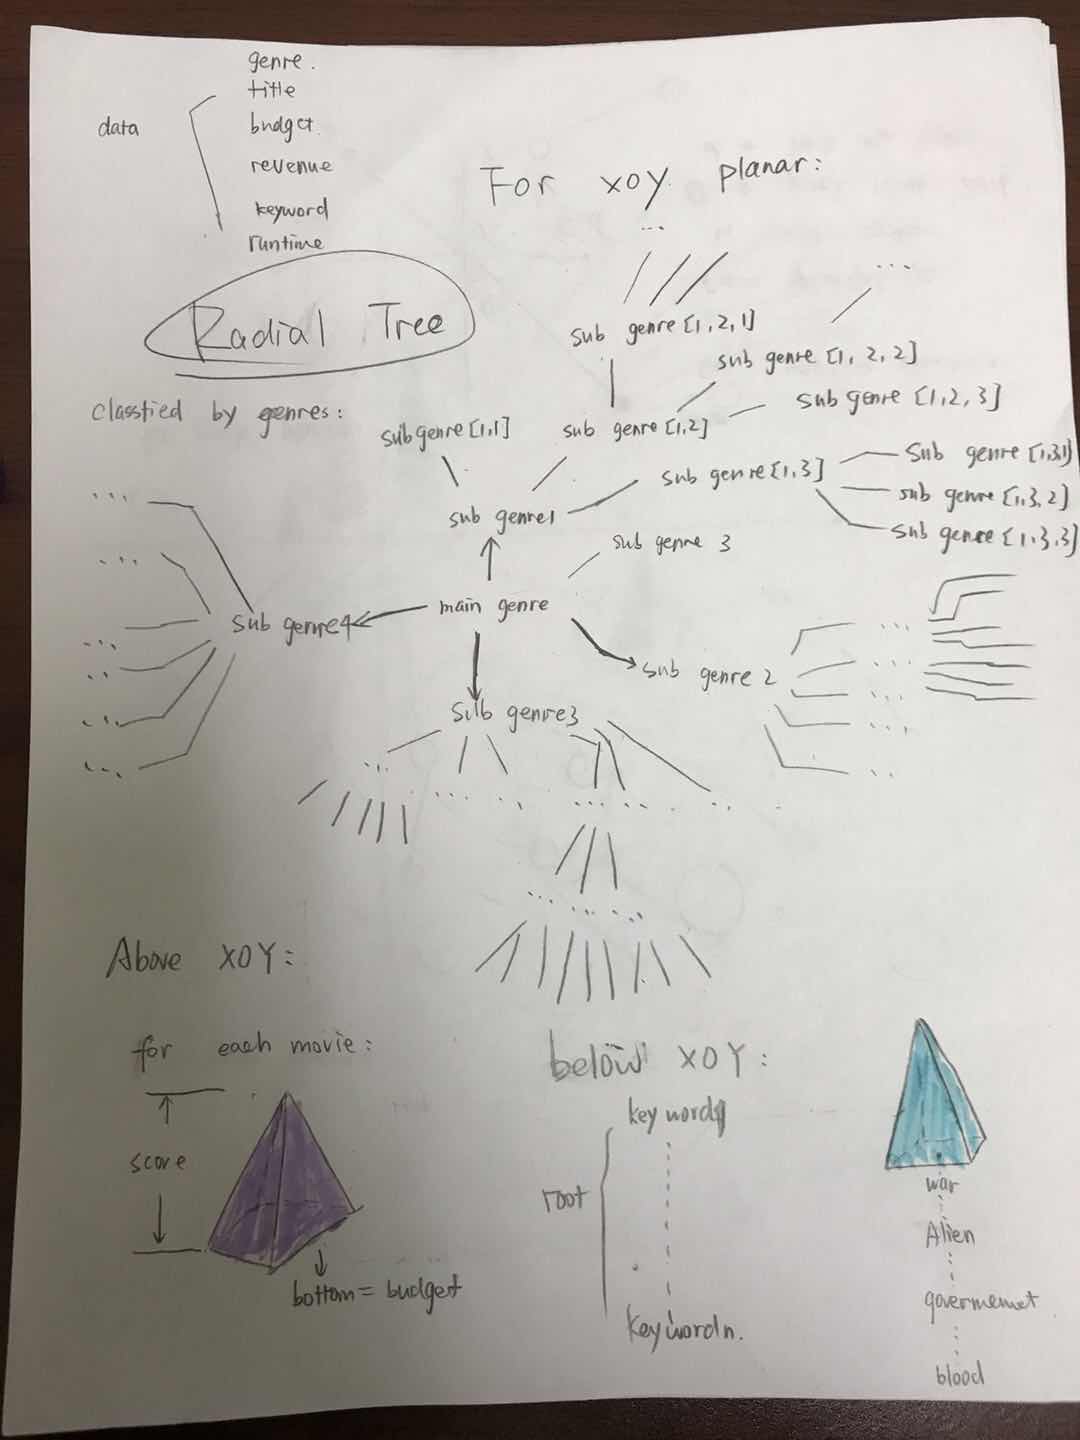 genre.
title
data
budget
revenue
keyword
runtime
For xoy planar:
Radial Tree
...
...
sub genre [1,2,1]
sub genre [1,2,2]
classfied by genres:
sub genre [1,2,3]
sub genre [1,1]
sub genre [1,2]
sub genre [1,3]
sub genre [1,3,1]
sub genre [1,3,2]
sub genre [1,3,3]
sub genre1
sub genre 3
main genre
sub genre4
sub genre 2
sub genre3
Above XOY:
for each movie:
score
bottom = budget
below XOY:
key word1
root
keywordn.
war
Alien
govermemet
blood